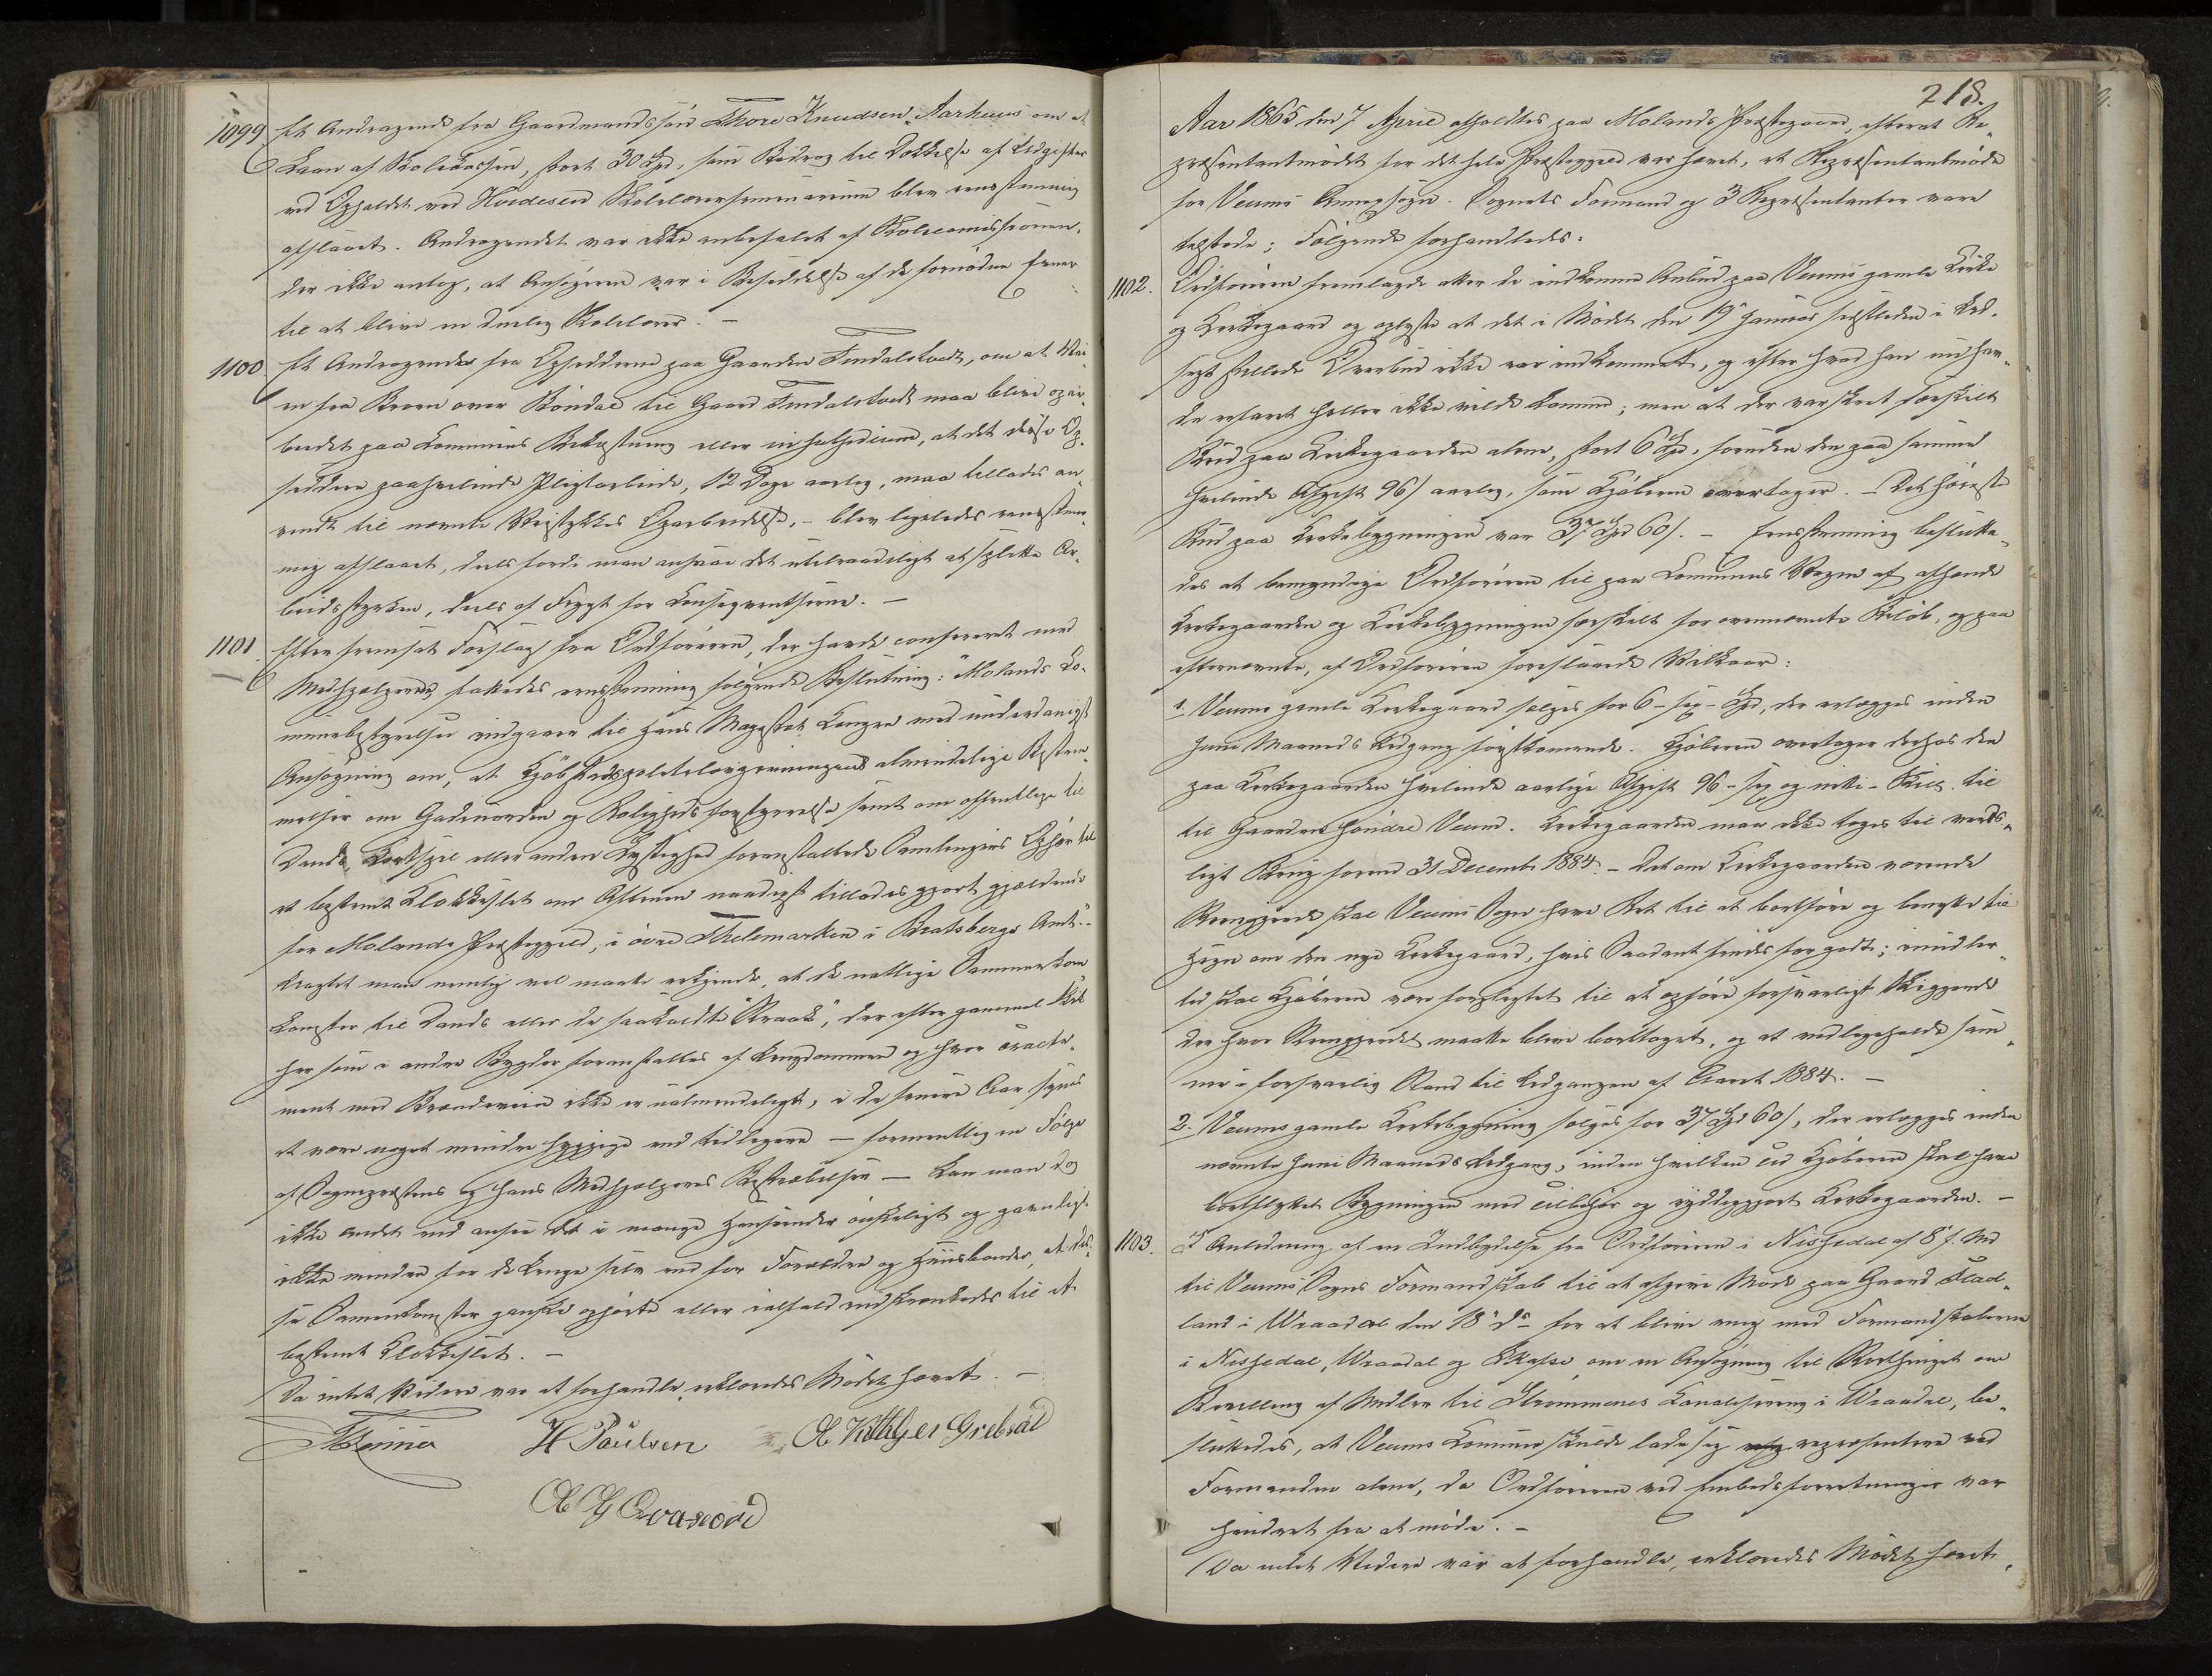 1099 Et Andragende fra Gaardmandssøn Thore Knudsen Aarhuus om et
Laan af Skolekassen, stort 30 Spd, som Bidrag til Dækkelse af Udgifter
ved Opholdet ved Hvideseid Skolelærerseminarium blev eensstemmig
afslaaet. Andragendet var ikke anbefalet af Skolecomissionen,
der ikke antog, at Ansøgeren var i Besiddelse af de fornødne Evner
til at blive en duelig Skolelærer. –
1100 Et Andragende fra Opsidderne paa Gaarden Findalstvedt, om at Vei-
en fra Broen over Bøndal til Gaard Findalstvedt maa blive opar-
beidet paa Communens Bekostning eller in subsidium, at det disse Op-
siddere paahvilende Pligtarbeide, 12 Dage aarlig, maa tillades an-
vendt til nævnte Veistykkes Oparbeidelse, – blev ligeledes eensstem-
mig afslaaet, deels fordi man ansaae det utilraadeligt at splitte Ar-
beidsstyrken, deels af Frygt for Konseqventserne. –
1101. Efter fremsat Forslag fra Ordføreren, der havde confereret med
Medhjælperne, fattedes eensstemmig følgende Beslutning: "Molands Co-
munebestyrelse indgaaer til Hans Majestæt Kongen med underdanigst
Ansøgning om, at Kjøbstadspolitilovgivningens almindelige Bestem-
melser om Gadeuorden og Roligheds forstyrrelse samt om offentlige til
Dands, Kortspil eller anden Lystighed foranstaltede Samlingers Ophør til
et bestemt Klokkeslet om Aftenen naadigst tillades gjort gjældende
for Molands Præstegjeld, i øvre Thelemarken i Bratsbergs Amt." –
Uagtet man nemlig vel maatte erkjende, at de natlige Sammenkom-
komster til Dands eller de saakaldte "Straak", der efter gammel Skik
her som i andre Bygder foranstaltes af Ungdommen og hvor
ment med Brændeviin ikke er ualmindeligt, i de senere Aar synes
at være noget mindre hyppige end tidligere – formentlig en Følge
af Sognepræstens og hans Medhjælperes Bestræbelser – kan man dog
ikke andet end ansee det i mange Henseender ønskeligt og gavnligt
ikke mindre for de Unge selv end for Forældre og Huusbonder, at dis-
se Sammenkomster ganske ophørte eller ialfald indskrænkedes til et
bestemt Klokkeslet. –
Da intet Videre var at forhandle, erklæredes Mødet hævet. –
H Paulsen
218.
Aar 1865 den 7 April afholdtes paa Molands Præstegaard, efterat Re-
præsentantmødet for det hele Præstegjeld var hævet, et Repræsentantmøde
for Veums Annexsogn. Sognets Formand og 3 Repræsentanter vare
tilstede; Følgende forhandledes:
1102. Ordføreren fremlagde atter de indkomne Anbud paa Veums gamle Kirke
og Kirkegaard og oplyste at det i Mødet den 19 Januar sidstleden i Ud-
sigt stillede Overbud ikke var indkommet, og efter hvad han nu hav-
de erfaret heller ikke vilde komme; men at der var skeet særskilt
Bud paa Kirkegaarden alene, stort 6 Spd, foruden den paa samme
hvilende Afgift 96 s aarlig, som Kjøberen overtager. – Det høieste
Bud paa Kirkebygningen var 37 Spd 60 s. – Eensstemmig beslutte-
des at bemyndige Ordføreren til paa Communens Vegne at afhænde
Kirkegaarden og Kirkebygningen særskilt for ovennævnte Beløb, og paa
efternævnte, af Ordføreren foreslaaede Vilkaar:
1. Veums gamle Kirkegaard sælges for 6 – sex – Spd, der erlægges inden
Juni Maaneds Udgang førstkommende. Kjøberen overtager derhos den
paa Kirkegaarden hvilende aarlige Afgift 96 – sex og niti – Skill. til
til Gaarden søndre Veum. Kirkegaarden maa ikke tages til verds-
ligt Brug forend 31 December 1884. – Det om Kirkegaarden værende
Steengjerde skal Veums Sogn have Ret til at bortføre og benytte til
Hegn om den nye Kirkegaard, hvis Saadant findes for godt; imidler-
tid skal Kjøberen være forpligtet til at opføre forsvarligt Skiggjerde
der hvor Steengjerdet maatte blive borttaget, og at vedligeholde sam-
me i forsvarlig Stand til Udgangen af Aaret 1884. –
2. Veums gamle Kirkebygning sælges for 37 Spd 60 s, der erlægges inden
nævnte Juni Maaneds Udgang, inden hvilken Tid Kjøberen skal have
bortflyttet Bygningen med Tilbehør og ryddiggjort Kirkegaarden. –
1103. I Anledning af en Indbydelse fra Ordføreren i Nissedal af 8 f. Md
til Veums Sogns Formandskab til at afgive Møde paa Gaard Flad-
land i Wraadal den 18 ds for at blive enig med Formandskaberne
i Nissedal, Wraadal og Skafse, om en Ansøgning til Storthinget om
Bevilling af Midler til Strømmenes Kanalisering i Wraadal, be-
sluttedes, at Veums Comune skulde lade sig repræsentere ved
Formanden alene, da Ordføreren ved Embedsforretninger var
hindret fra at møde. –
Da intet Videre var at forhandle, erklæredes Mødet hævet.